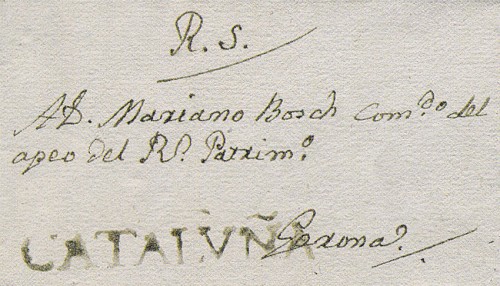 R. S.
A D. Mariano Bosch Com.do del
apeo del R.l Patrim.o
Gerona.
CATALUÑA